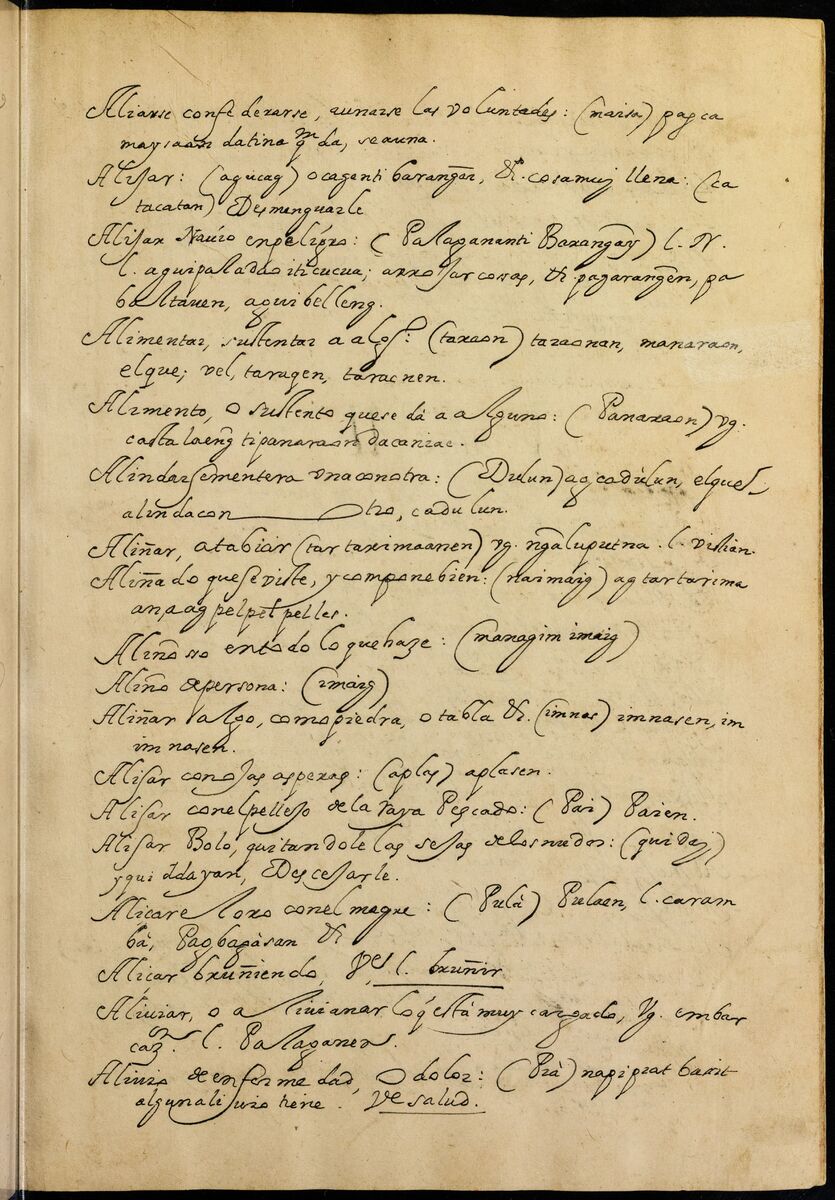 Aliarse confederarse, aunarse las voluntades: (maisa) pagca
maysaan datina q̃ da, seauna.
Alijar: (agucag) ocagenti barangāi, &. cosamuy llena: (ca
tacatan) Desmenguarle
Alijar Navio enpeligro: (Palagananti Barangāy) l. N.
l. aguipaladao iticucua; arrojar cossas, & pagarangēn, pa
baltauen, aguibelleng.
Alimentar, sustentar a algo: (taraon) taraonan, manaraon,
elque; vel, taraqen, taracnen.
Alimento, o sustento quese dá a alguno: (Panaraon) vg.
casta laeng̃ tipanaraon dacaniac.
Alindar sementera vnaconotra: (Dulun) agcadùlun, elques,
alindacon otro, cadulun.
Aliñar, atabiar (tartarimaanen) vg. ng̃aluputna. l. vistian.
Aliñado queseviste, y componebien: (naimaig) agtartarima
anpagpelpelpelles.
Aliñoso entodo loquehaze: (managim imaig)
Aliño depersona: (imaig)
Aliñar algo, comopiedra, o tabla &. (imnas) imnasen, im
im nasen.
Alisar conojas asperas: (aplas) aplasen.
Alisar conelpellejo dela raya Pescado: (Pai) Paien.
Alisar Bolo, quitandole las sejas delosnudos: (quiday)
yquiddayan, Descejarle.
Alicare loro conel mague: (Pulà) Pulaen, l. caram
bà, Pagbagàsan &
Aliçar bruñiendo, Ve, l. bruñir
Aliviar, o alivianar loq́ está muy cargado, Vg. embar
caz.ᵒⁿ l. Palaganen.
Alivio de enfermedad, O dolor: (Pia) napipiat bassit
algunalivio tiene. Ve salud.